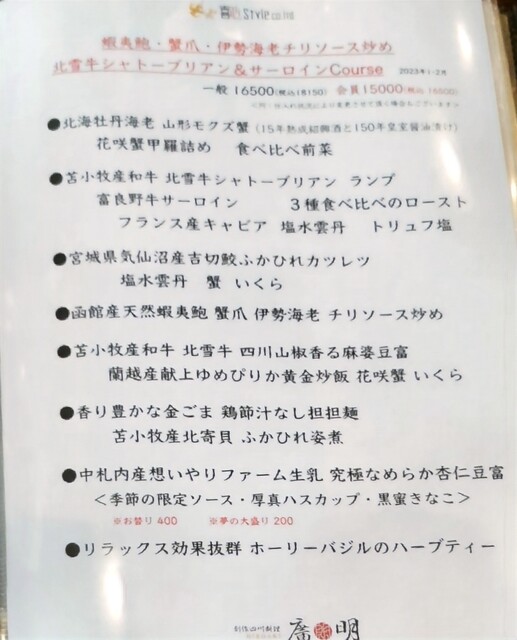 喜心 Style co.ltd
蝦夷鮑・蟹爪・伊勢海老チリソース炒め
北雪牛シャトーブリアン&サーロインCourse 2023年1・2月
一般 16500(税込18150) 会員15000(税込 16500)
●北海牡丹海老 山形モクズ蟹 (15年熟成紹興酒と150年皇室醤油漬け)
花咲蟹甲羅詰め 食べ比べ前菜
●苫小牧産和牛 北雪牛シャトーブリアン ランプ
富良野牛サーロイン 3種食べ比べのロースト
フランス産キャビア 塩水雲丹 トリュフ塩
●宮城県気仙沼産吉切鮫ふかひれカツレツ
塩水雲丹 蟹 いくら
●函館産天然蝦夷鮑 蟹爪 伊勢海老 チリソース炒め
●苫小牧産和牛 北雪牛 四川山椒香る麻婆豆富
蘭越産献上ゆめぴりか黄金炒飯 花咲蟹 いくら
●香り豊かな金ごま 鶏節汁なし担担麺
苫小牧産北寄貝 ふかひれ姿煮
●中札内産想いやりファーム生乳 究極なめらか杏仁豆富
<季節の限定ソース・厚真ハスカップ・黒蜜きなこ>
※お替り 400 ※夢の大盛り 200
●リラックス効果抜群 ホーリーバジルのハーブティー
創作四川料理 廣明